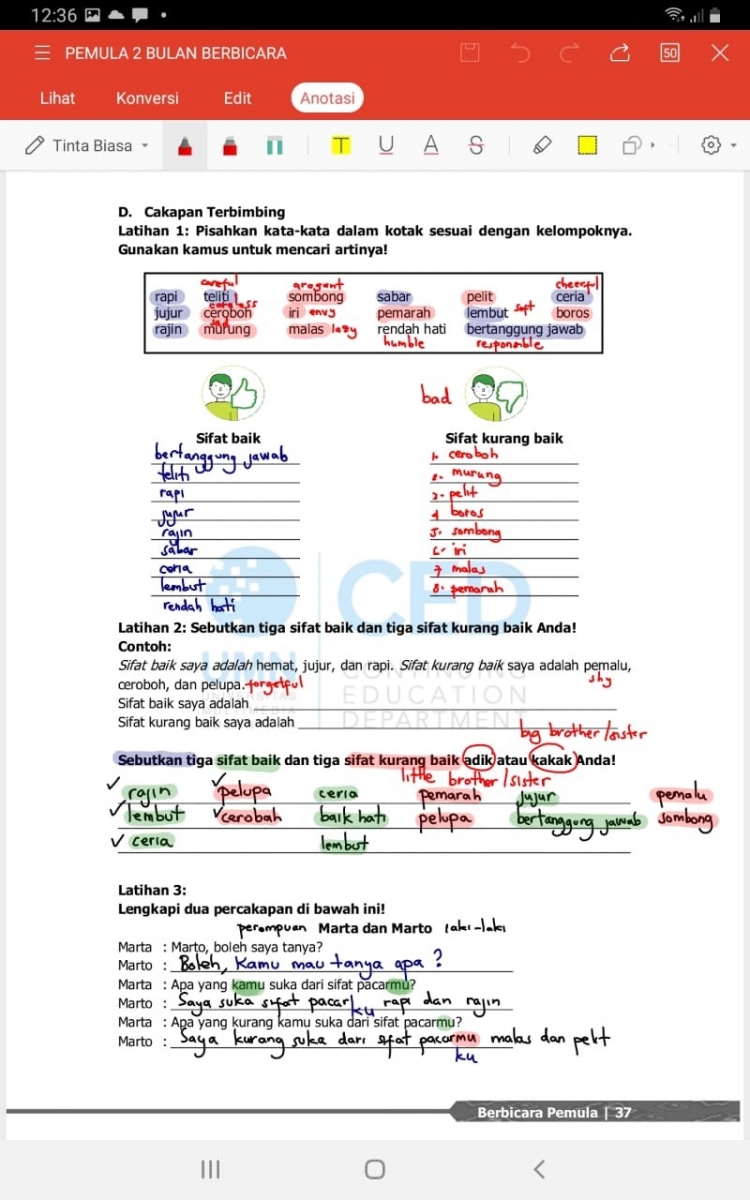 12:36
PEMULA 2 BULAN BERBICARA
50
Lihat Konversi Edit Anotasi
Tinta Biasa T U A S
D. Cakapan Terbimbing
Latihan 1: Pisahkan kata-kata dalam kotak sesuai dengan kelompoknya.
Gunakan kamus untuk mencari artinya!
careful arogant cheerful
rapi teliti sombong sabar pelit ceria
careless
jujur ceroboh iri envy pemarah lembut soft boros
sad
rajin murung malas lazy rendah hati bertanggung jawab
humble responsible
bad
Sifat baik Sifat kurang baik
bertanggung jawab 1. ceroboh
teliti 2. murung
rapi 3. pelit
jujur 4 boros
rajin 5. sombong
sabar 6. iri
ceria 7 malas
lembut 8. pemarah
rendah hati
UMN CED
CONTINUING
EDUCATION
DEPARTMENT
Latihan 2: Sebutkan tiga sifat baik dan tiga sifat kurang baik Anda!
Contoh:
Sifat baik saya adalah hemat, jujur, dan rapi. Sifat kurang baik saya adalah pemalu,
ceroboh, dan pelupa. forgetful shy
Sifat baik saya adalah
Sifat kurang baik saya adalah
big brother/sister
Sebutkan tiga sifat baik dan tiga sifat kurang baik adik atau kakak Anda!
little brother/sister
rajin pelupa ceria pemarah jujur pemalu
lembut cerobah baik hati pelupa bertanggung jawab sombong
ceria lembut
Latihan 3:
Lengkapi dua percakapan di bawah ini!
perempuan Marta dan Marto laki-laki
Marta : Marto, boleh saya tanya?
Marto : Boleh, kamu mau tanya apa?
Marta : Apa yang kamu suka dari sifat pacarmu?
Marto : Saya suka sifat pacarku rapi dan rajin
Marta : Apa yang kurang kamu suka dari sifat pacarmu?
Marto : Saya kurang suka dari sifat pacarmu malas dan pelit
ku
Berbicara Pemula | 37